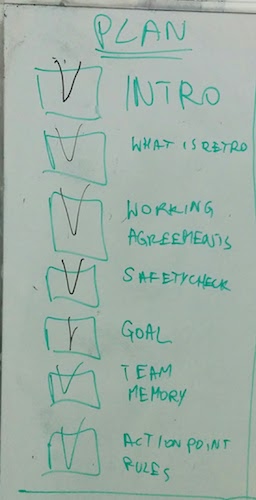 PLAN
INTRO
WHAT IS RETRO
WORKING
AGREEMENTS
SAFETYCHECK
GOAL
TEAM
MEMORY
ACTIONPOINT
RULES